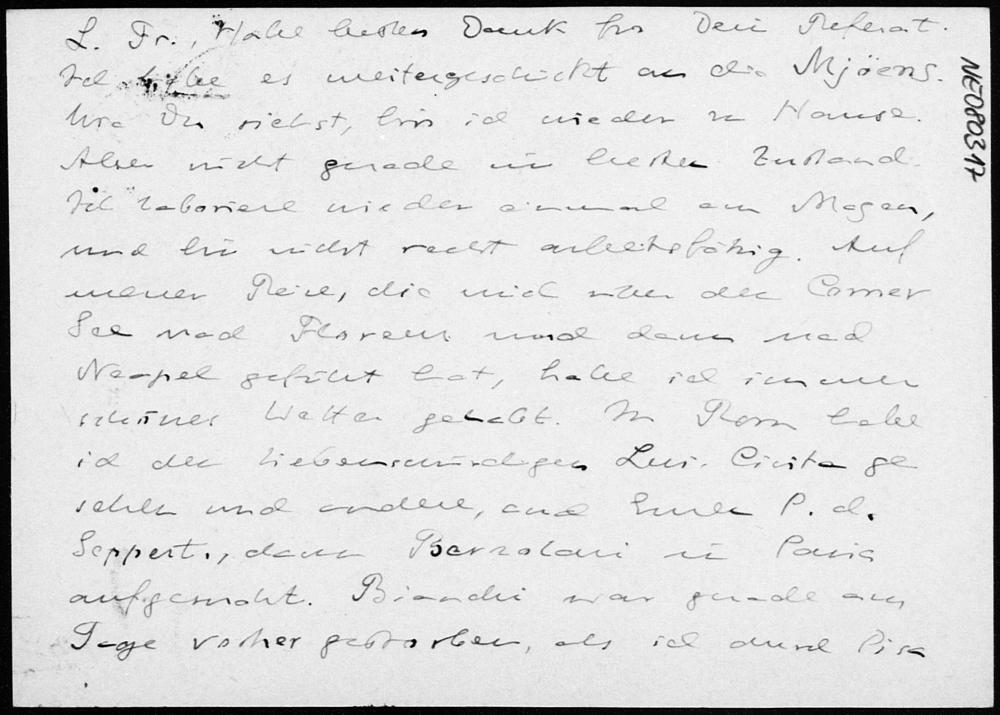 L. Fr., Habe besten Dank für Dein Referat.
Ich habe es weitergeschickt an die Mjöens.
Wie Du siehst, bin ich wieder zu Hause.
Aber nicht gerade im besten Zustand.
Ich laboriere wieder einmal am Magen,
und bin nicht recht arbeitsfähig. Auf
meiner Reise, die mich über den Comer
See nach Florenz und dann nach
Neapel geführt hat, habe ich immer
schönes Wetter gehabt. In Rom habe
ich den liebenswürdigen Levi-Civita ge
sehen und andere, auch P. d.
dann Berzolari in Pavia
aufgesucht. Bianchi war gerade am
Tage vorher gestorben, als ich durch Pisa
NE080317